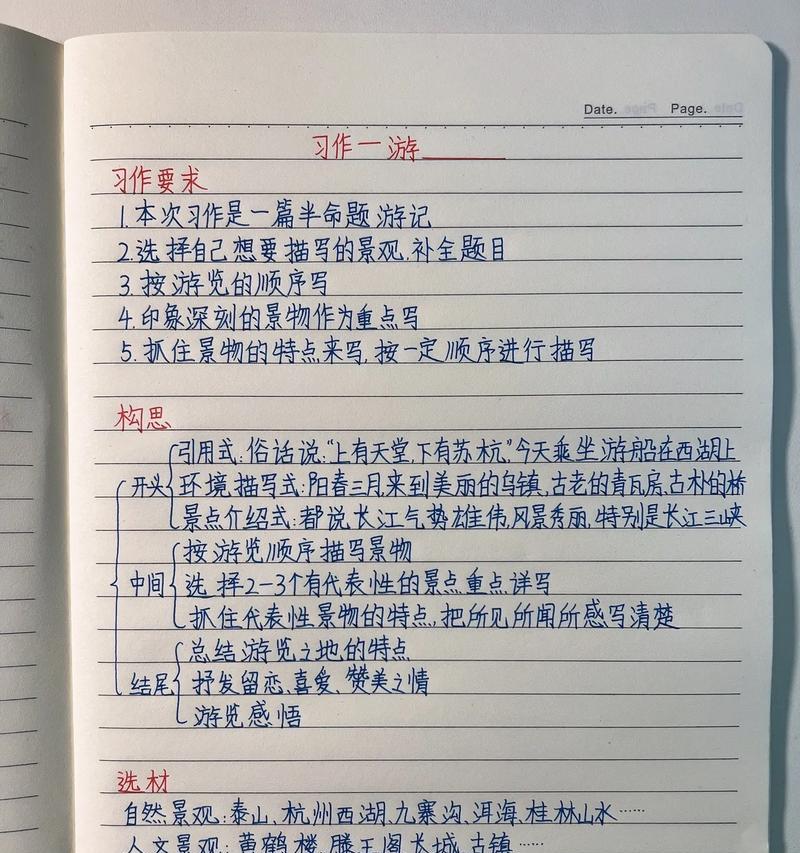 Date. Page.
习作一游______
习作要求
1.本次习作是一篇半命题游记
2.选择自己想要描写的景观,补全题目
3.按游览的顺序写
4.印象深刻的景物作为重点写
5.抓住景物的特点来写,按一定顺序进行描写
构思
开头
引用式:俗话说:"上有天堂,下有苏杭,"今天乘坐游船在西湖上
环境描写式:阳春三月,来到美丽的乌镇,古老的青瓦房,古朴的桥
景点介绍式:都说长江气势雄伟,风景秀丽,特别是长江三峡
中间
按游览顺序描写景物
选择2-3个有代表性的景点重点详写
抓住代表性景物的特点,把所见所闻所感写清楚
结尾
总结游览之地的特点
抒发留恋、喜爱、赞美之情
游览感悟
选材
自然景观:泰山、杭州西湖、九寨沟、洱海、桂林山水……
人文景观:黄鹤楼、滕王阁、长城、古镇……